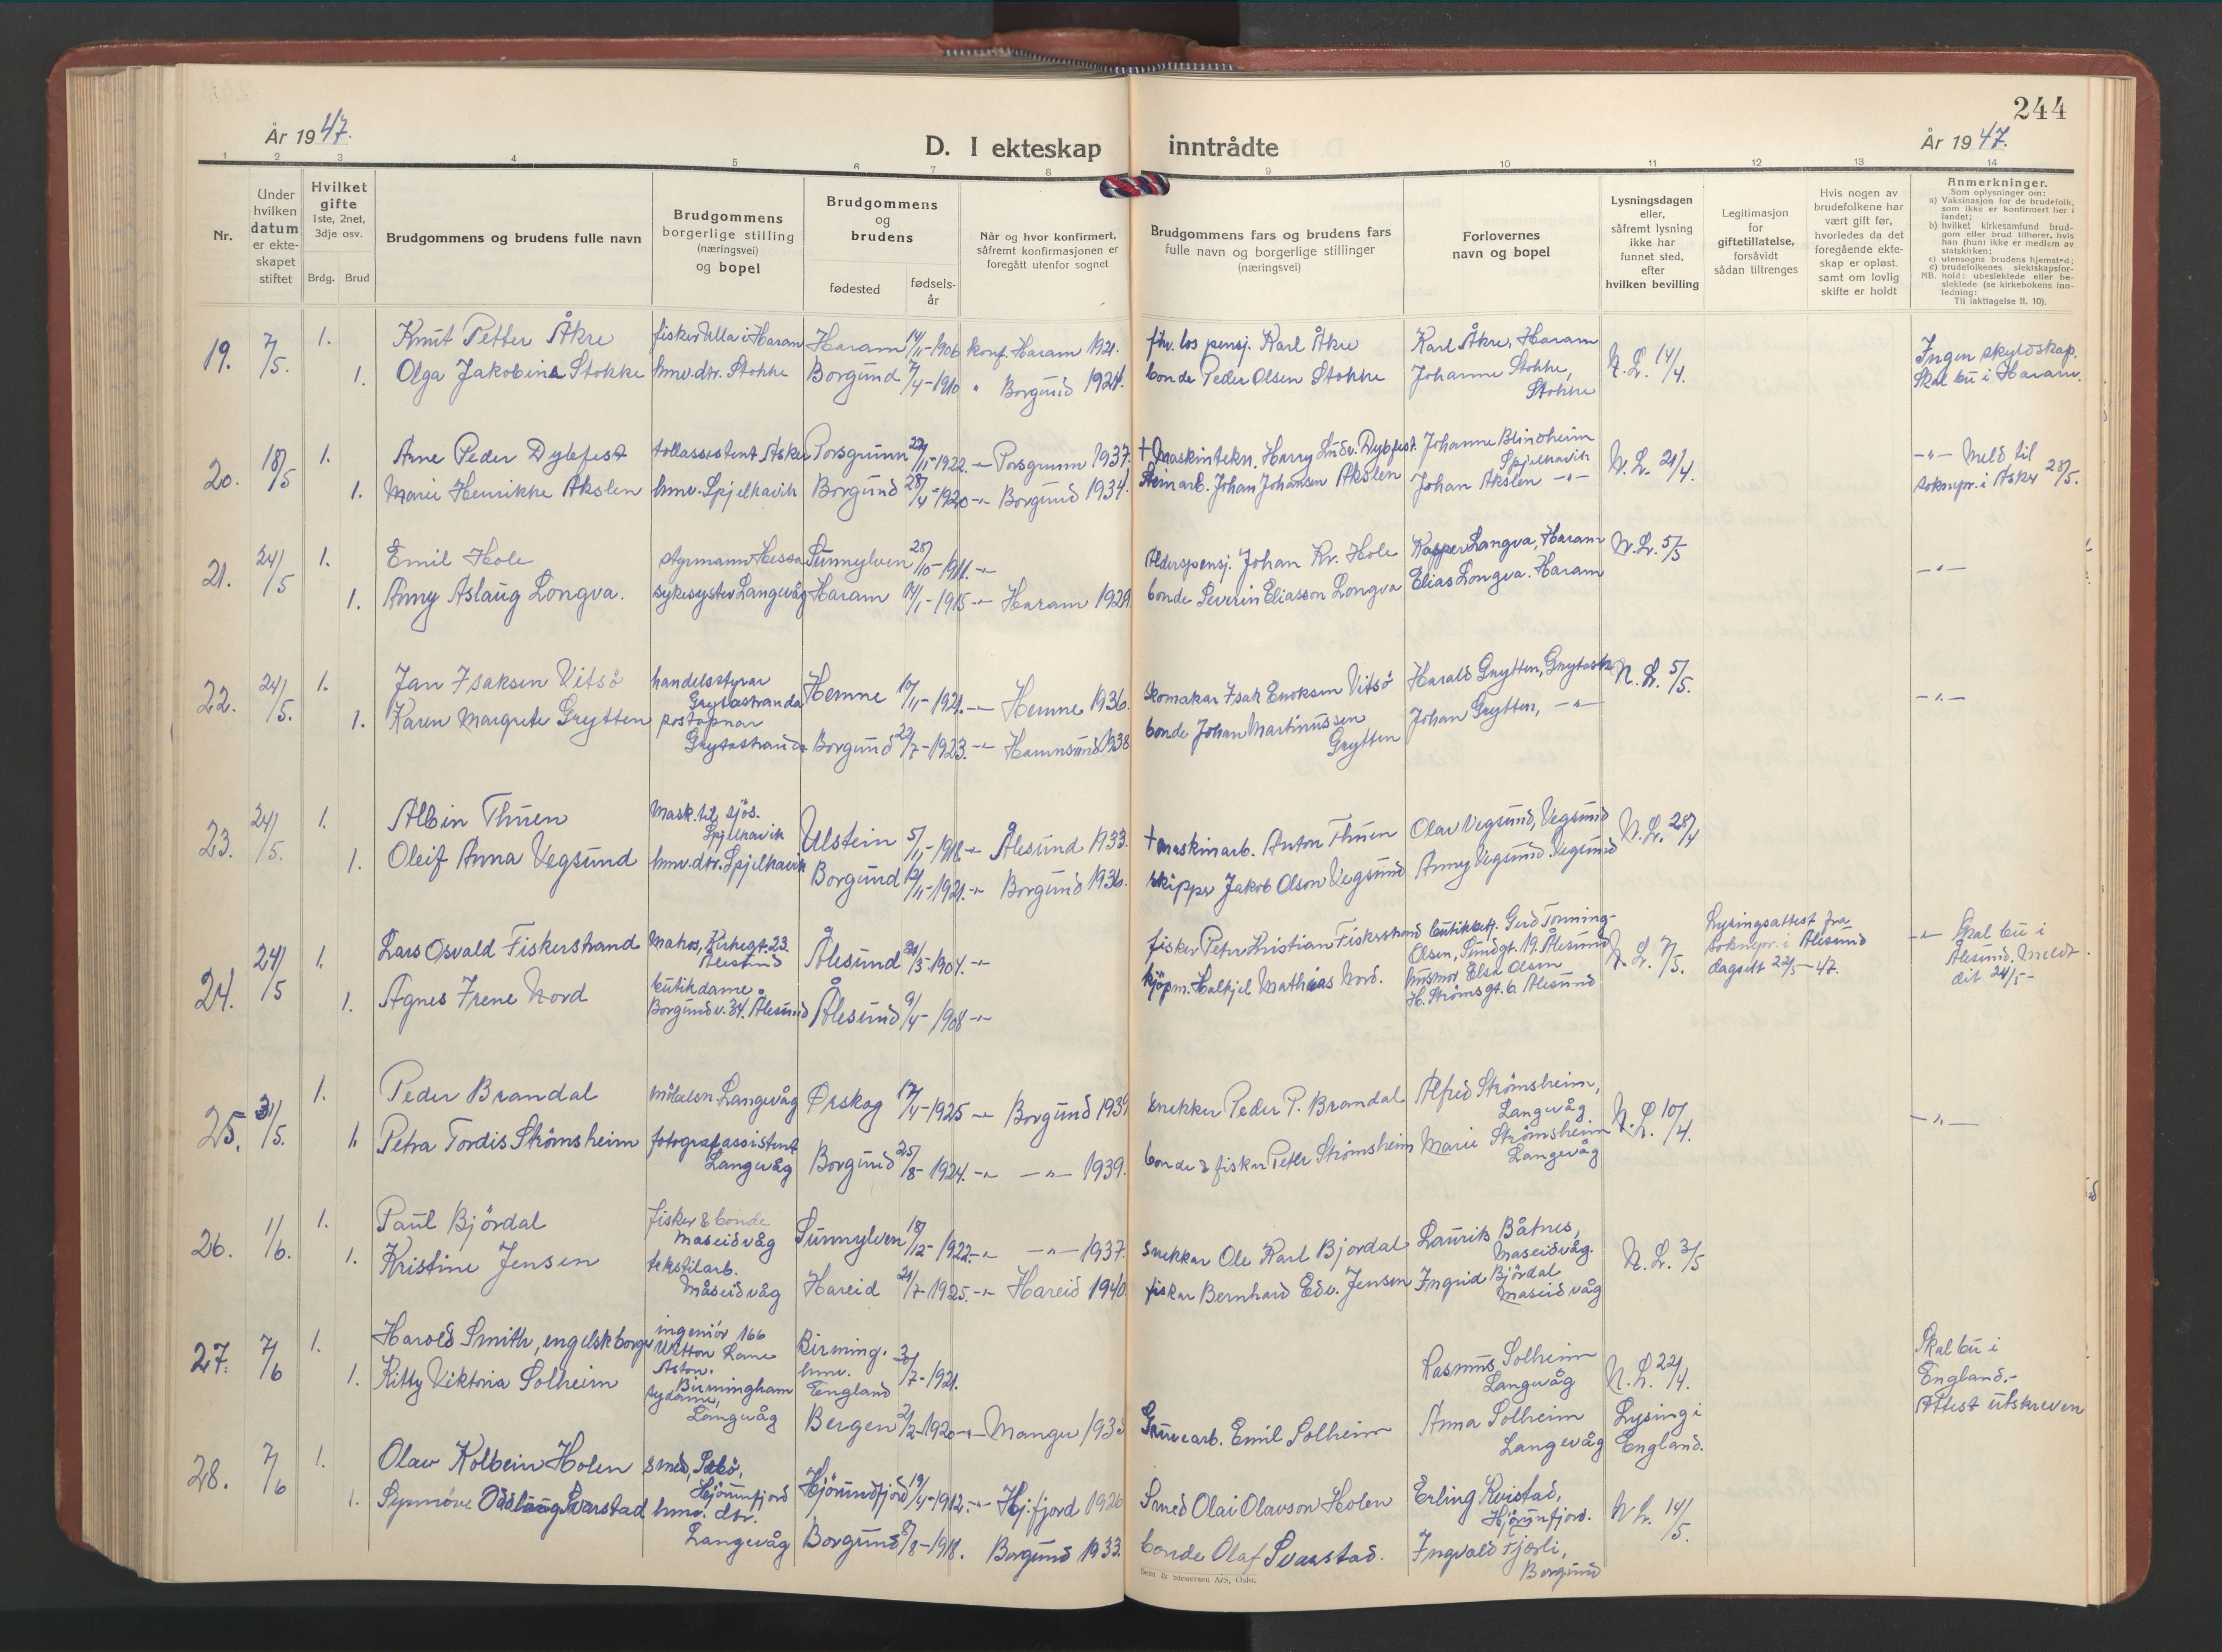 244
År 1947.
D. I ekteskap inntrådte
År 1947.
1 2 3 4 5 6 7 8 9 10 11 12 13 14
Nr.
Under hvilken datum er ekte-skapet stiftet
Hvilket gifte 1ste, 2net, 3dje osv.
Brdg. Brud
Brudgommens og brudens fulle navn
Brudgommens borgerlige stilling (næringsvei) og bopel
Brudgommens og brudens
fødested
fødsels-år
Når og hvor konfirmert, såfremt konfirmasjonen er foregått utenfor sognet
Brudgommens fars og brudens fars fulle navn og borgerlige stillinger (næringsvei)
Forlovernes navn og bopel
Lysningsdagen eller, såfremt lysning ikke har funnet sted, efter hvilken bevilling
Legitimasjon for giftetillatelse, forsåvidt sådan tiltrenges
Hvis nogen av brudefolkene har vært gift før, hvorledes da det foregående ekte-skap er opløst. samt om lovlig skifte er holdt
Anmerkninger.
Som oplysninger om:
a) Vaksinasjon for de brudefolk, som ikke er konfirmert her i landet;
b) hvilket kirkesamfund brud-gom eller brud tilhører, hvis han (hun) ikke er medlem av statskirken;
c) utensogns brudens hjemsted;
d) brudefolkenes slektskapsfor-
NB. hold: ubeslektede eller be-slektede (se kirkebokens inn-ledning:
Til iakttagelse II. 10).
19. 7/5. 1. Knut Petter Åkre fisker Ulla i Haram Haram 14/11-1906 konf. Haram 1921. fhv. los pensj. Karl Åkre Karl Åkre, Haram N. L. 14/4. Ingen skyldskap.
1. Olga Jakobina Stokke hmv. dtr. Stokke Borgund 7/4-1910 " Borgund 1924. bonde Peder Olsen Stokke Johanne Stokke, Stokke Skal bu i Haram.
20. 18/5 1. Arne Peder Dybfest tollassistent Asker Porsgrunn 22/11-1922 -"- Porsgrunn 1937. † Maskintekn. Harry Ludv. Dybfest. Johanne Blindheim Spjelkavik N. L. 21/4. -"- Meld til
1. Marie Henrikke Akslen hmv. Spjelkavik Borgund 28/4-1920 -"- Borgund 1934. Steinarb. Johan Johansen Akslen Johan Akslen -"- soknepr. i Asker 28/5.
21. 24/5 1. Emil Hole styrmann Hessa Sunnylven 28/10-1911. -"- Alderspensj. Johan Kr. Hole Kasper Longva, Haram N. L. 5/5 -"-
1. Anny Aslaug Longva. sykesyster Langevåg Haram 14/1-1915 -"- Haram 1929. bonde Severin Eliasson Longva Elias Longva. Haram
22. 24/5. 1. Jan Isaksen Vitsö handelsstyrar Grytastranda Hemne 10/11-1921. -"- Hemne 1936. Skomakar Isak Enoksen Vitsö Harald Grytten, Grytastr. N. L. 5/5. -"-
1. Karen Margrete Grytten postopnar Grytastranda Borgund 22/7-1923. -"- Hamnsund 1938 bonde Johan Martinussen Grytten Johan Grytten, -"-
23. 24/5. 1. Albin Thuen Mask. til sjös. Spjelkavik Ulstein 5/11-1918. -"- Ålesund 1933. † maskinarb. Anton Thuen Olav Vegsund, Vegsund N. L. 28/4
1. Oleif Anna Vegsund hmv. dtr. Spjelkavik Borgund 12/11-1921. -"- Borgund 1936. skipper Jakob Olson Vegsund Anny Vegsund. Vegsund
24. 24/5 1. Lars Osvald Fiskerstrand Matros, Kirkegt. 23. Ålesund Ålesund 24/3-1904. -"- fisker Petr Kristian Fiskerstrand butikkbetj. Gerd Tonning-Olsen, Sundgt. 19. Ålesund N. L. 7/5. Lysingsattest fra soknepr. i Ålesund dagsett 22/5-47. -"- Skal bu i Ålesund. Meldt dit 24/5-
1. Agnes Irene Nord butikdame Borgundv. 34. Ålesund Ålesund 9/4-1908 -"- Kjöpm. Halkjel Mathias Nord. husmor Elsa Olsen H. Strömsgt. 6. Ålesund
25. 31/5. 1. Peder Brandal möbelsn. Langevåg Ørskog 17/4-1925 -"- Borgund 1939 snekker Peder P. Brandal Alfred Strömsheim, Langevåg N. L. 10/4. -"-
1. Petra Tordis Strömsheim fotografassistent Langevåg Borgund 25/8-1924. -"- -"- 1939. bonde & fisker Peter Strömsheim Marie Strömsheim Langevåg
26. 1/6. 1. Paul Björdal fisker & bonde Maseidvåg Sunnylven 18/12-1922. -"- -"- 1937. Snekkar Ole Karl Bjordal Laurits Båtnes, Maseidvåg. N. L. 3/5
1. Kristine Jensen tekstilarb. Måseidvåg Hareid 21/7-1925. -"- Hareid 1940 fiskar Bernhard Edv. Jensen Ingrid Björdal Maseidvåg
27. 7/6 1. Harold Smith, engelsk borger ingeniör 166 Witton Lane Aston. Birmingham Birming. hmv. England 3/7-1921. Rasmus Solheim Langevåg N. L. 22/4. Skal bu i England.-
1. Kitty Viktoria Solheim sydame, Langevåg Bergen 2/2-1920 -"- Manger 1935 Gruvearb. Emil Solheim Anna Solheim Langevåg Lysing i England. Attest utskreven
28. 7/6 1. Olav Kolbein Holen smed, Sæbö, Hjörundfjord Hjörundfjord 19/4-1912. -"- Hj. fjord 1926 Smed Olai Olavson Holen Erling Kvistad, Hjörunfjord. N. L. 14/5.
1. Synnöve Oddlaug Svarstad hmv. dtr. Langevåg Borgund 8/8-1918. Borgund 1933. bonde Olaf Svarstad. Ingvald Fjörli, Borgund
Sem & Stenersen A/S, Oslo.